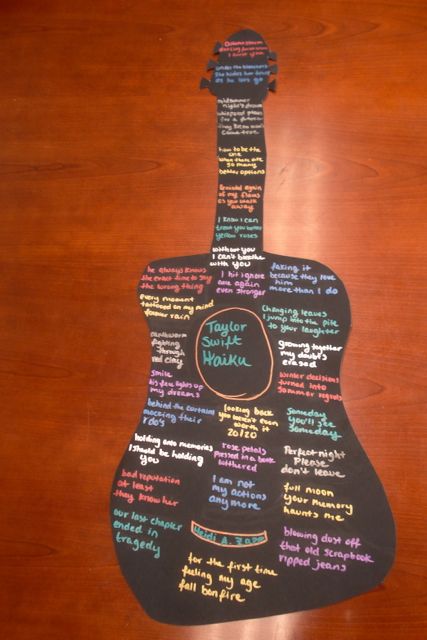 under the bleachers
she hides her face
as he lets go
midsummer
night's dream
whispered
come true
how to be the
one
when there are
so many
better options
Reminded again
of my flaws
as you walk
away
I know I can
treat you better
yellow roses
without you
I can't breathe
with you
he always knows
the exact time to say
the wrong thing
I hit ignore
once again
even stronger
faking it
because they love
him
more than I do
every moment
tattooed on my mind
forever rain
Changing leaves
I jump into the pile
to your laughter
earthworm
fighting
through
red clay
Taylor
Swift
Haiku
growing together
my doubts
erased
smile
his eyes lights up
my dreams
winter decisions
turned into
summer regrets
behind the curtains
mocking their
I do's
looking back
you weren't even
worth it
20/20
Someday
you'll see
Someday
holding onto memories
I should be holding
you
rose petals
pressed in a book
withered
Perfect night
Please
don't leave
bad reputation
at least
they know her
I am not
my actions
any more
full moon
your memory
haunts me
our last chapter
ended in
tragedy
Heidi A.
blowing dust off
that old scrapbook
ripped jeans
for the first time
feeling my age
fall bonfire